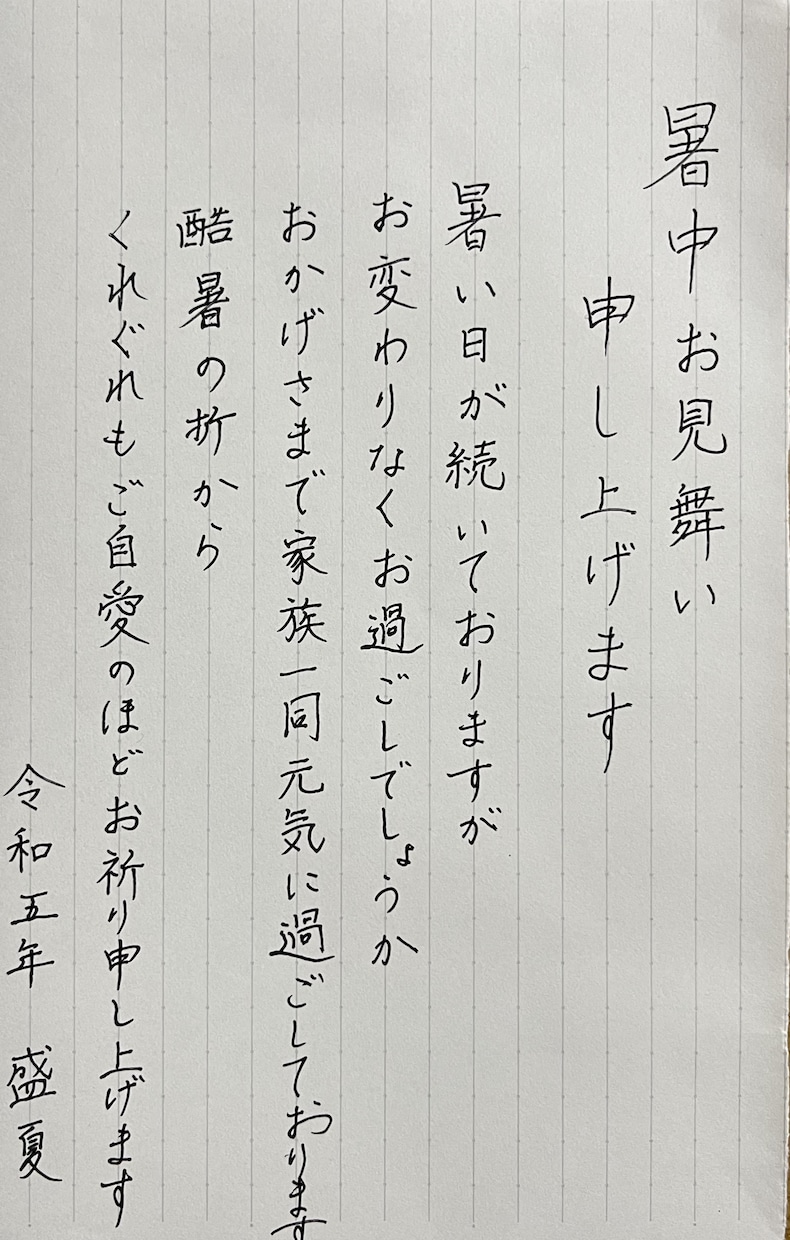 暑中お見舞い
申し上げます
暑い日が続いておりますが
お変わりなくお過ごしでしょうか
おかげさまで家族一同元気に過ごしております
酷暑の折から
くれぐれもご自愛のほどお祈り申し上げます
令和五年　盛夏